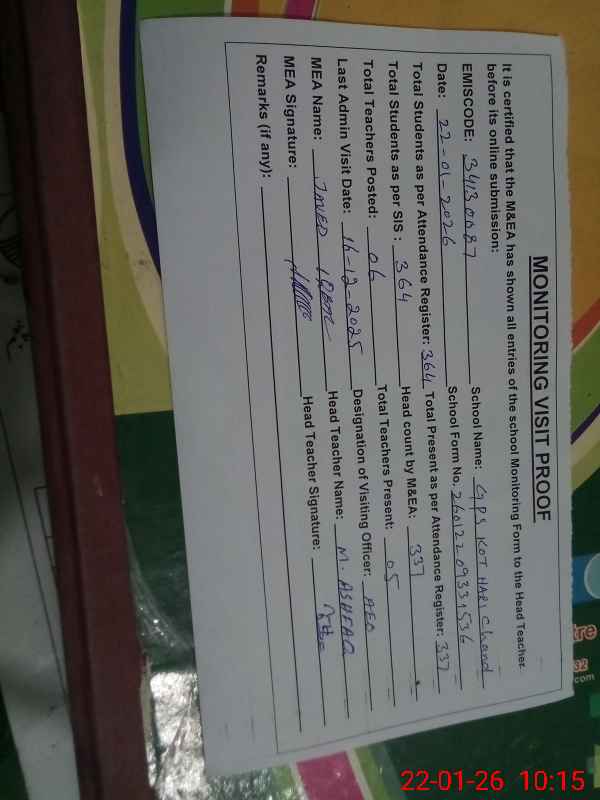 MONITORING VISIT PROOF
It is certified that the M&EA has shown all entries of the school Monitoring Form to the Head Teacher before its online submission:
EMISCODE: 34130087 School Name: GPS KOT HARI Chand
Date: 22-01-2026 School Form No. 26012209331536
Total Students as per Attendance Register: 364 Total Present as per Attendance Register: 337
Total Students as per SIS : 364 Head count by M&EA: 337
Total Teachers Posted: 06 Total Teachers Present: 05
Last Admin Visit Date: 16-12-2025 Designation of Visiting Officer: AEO
MEA Name: JAVED IQBAL Head Teacher Name: M. ASHFAQ
MEA Signature: Head Teacher Signature:
Remarks (if any):
tre
32
com
22-01-26 10:15